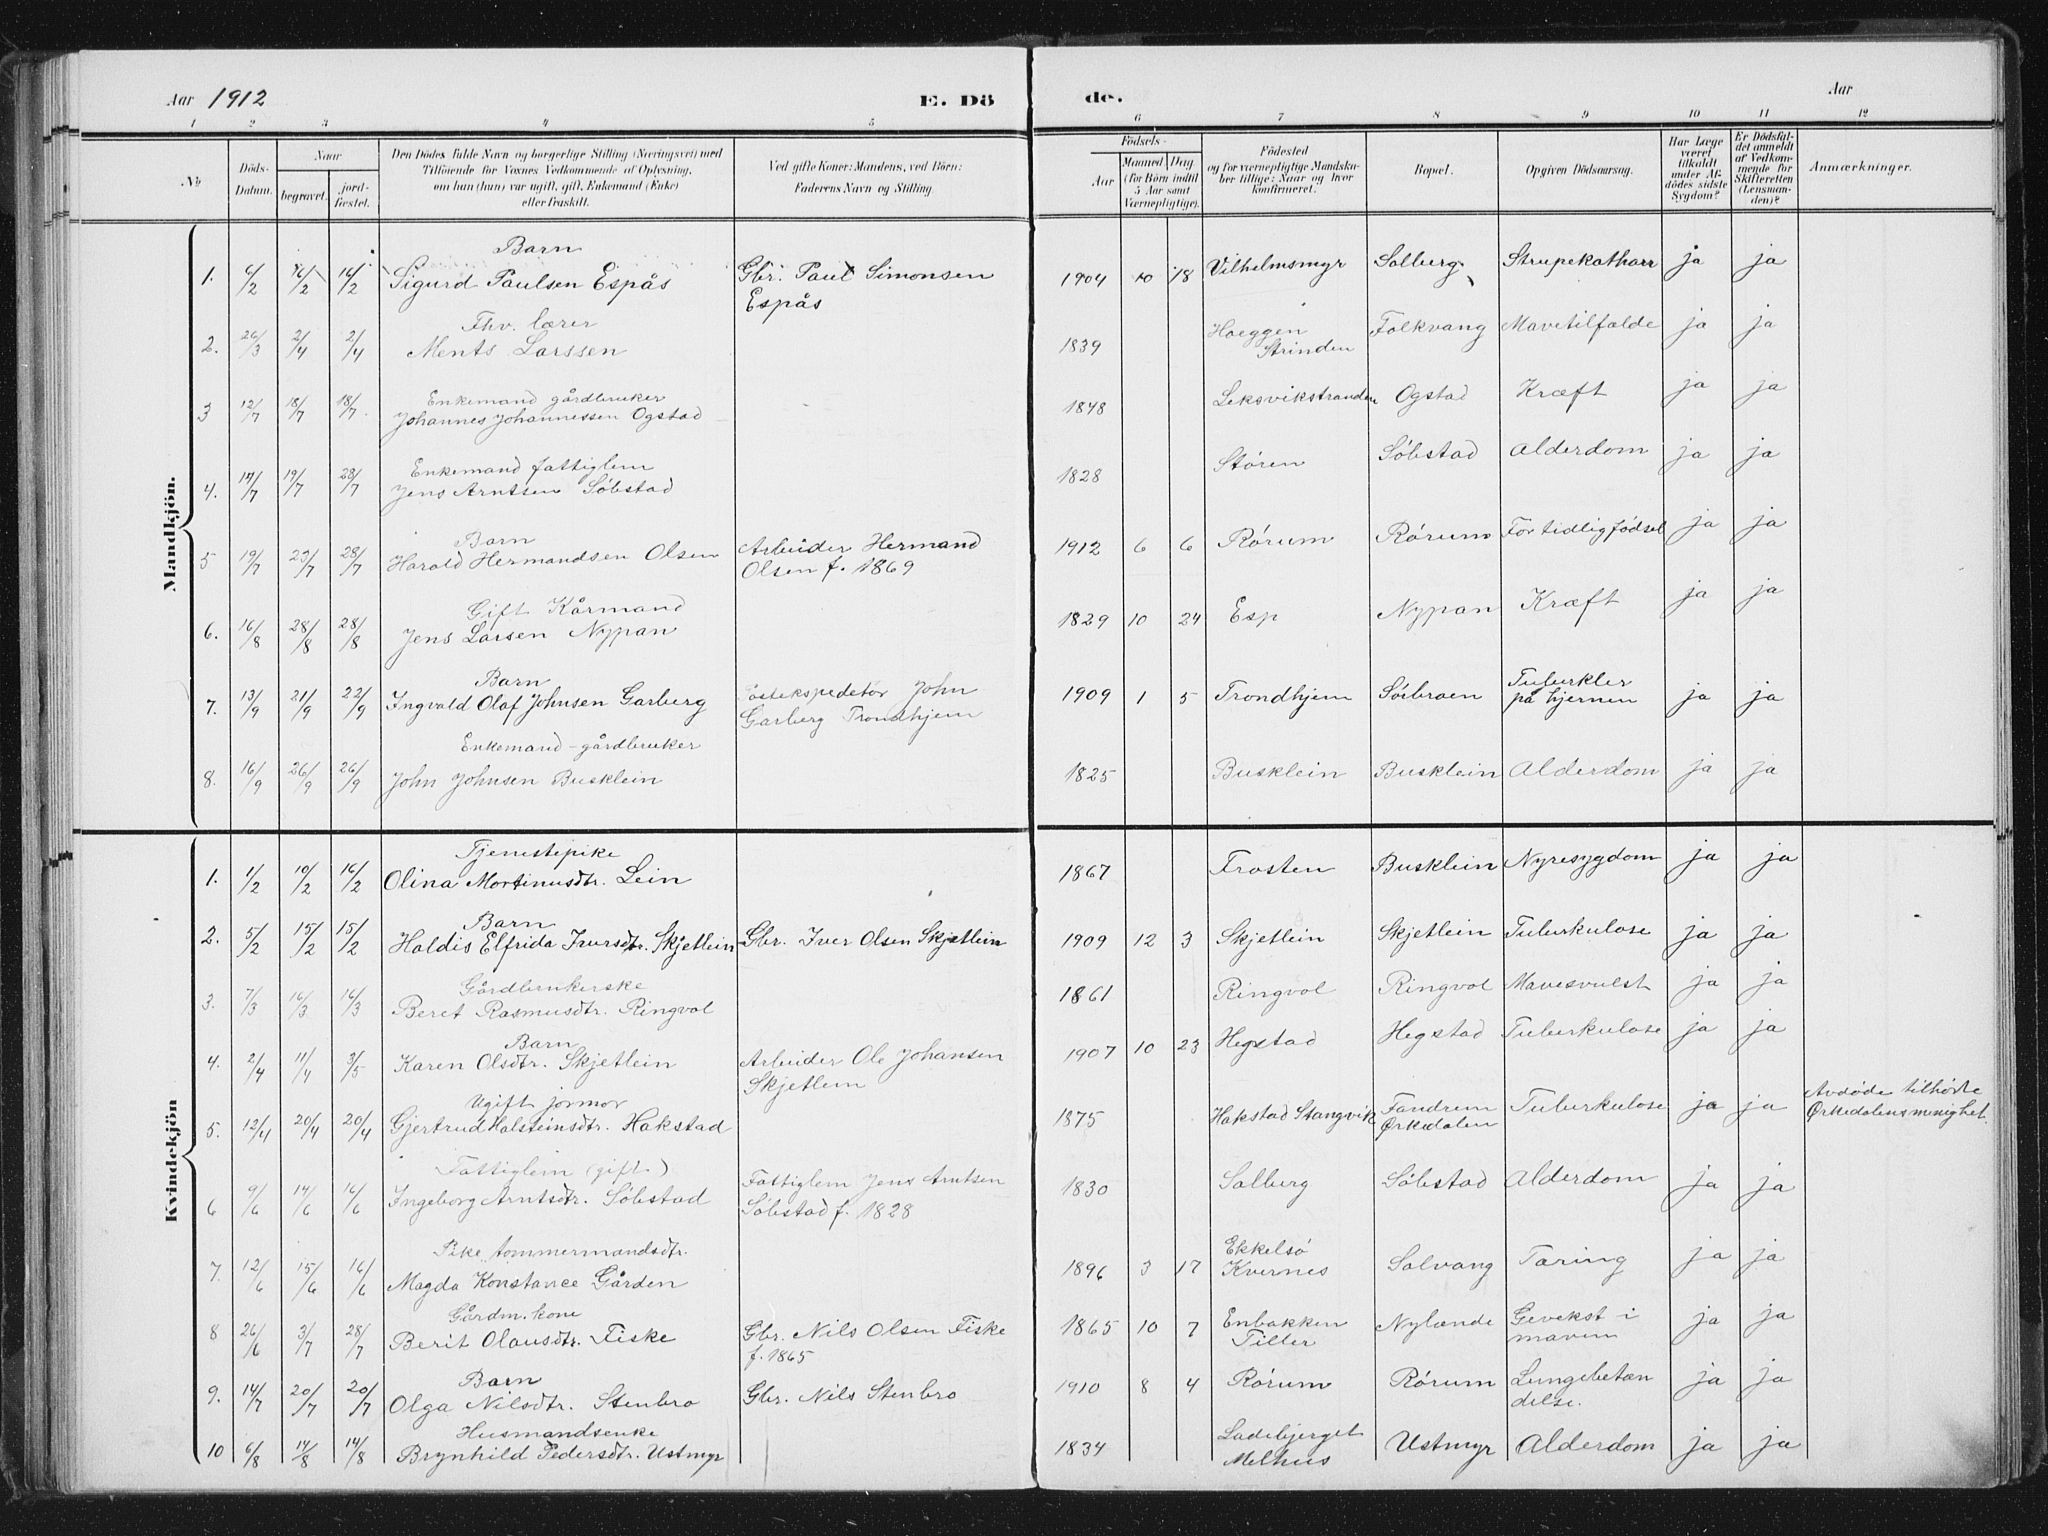 Aar 1912 E. Dö de. Aar
1 2 3 4 5 6 7 8 9 10 11 12
No Döds-Datum. Naar begravet. jord-fæstet. Den Dödes fulde Navn og borgerlige Stilling (Næringsvei) med Tilföiende for Voxnes Vedkommende af Oplysning, om han (hun) var ugift, gift, Enkemand (Enke) eller fraskilt. Ved gifte Koner: Mandens, ved Börn: Faderens Navn og Stilling. Födsels- Aar Maaned Dag (for Börn indtil 5 Aar samt Værnepligtige). Födested og for værnepligtige Mandskaber tillige: Naar og hvor konfirmeret. Bopæl. Opgiven Dödsaarsag. Har Læge været tilkaldt under Afdödes sidste Sygdom? Er Dödsfaldet anmeldt af Vedkommende for Skifteretten (Lensmanden)? Anmærkninger.
Mandkjön.
Barn
1. 6/2 16/2 16/2 Sigurd Paulsen Espås Gbr. Paul Simonsen Espås 1904 10 18 Vilhelmsmyr Solberg Strupekatharr ja ja
Fhv. lærer
2. 26/3 2/4 2/4 Ments Larssen 1839 Hoeggen Strinden Folkvang Mavetilfælde ja ja
Enkemand gårdbruker
3 12/7 18/7 18/7 Johannes Johannessen Ogstad 1848 Leksvikstranden Ogstad Kræft ja ja
Enkemand fattiglem
4. 14/7 19/7 28/7 Jens Arntsen Söbstad 1828 Stören Söbstad Alderdom ja ja
Barn
5 19/7 23/7 28/7 Harald Hermandsen Olsen Arbeider Hermand Olsen f. 1869 1912 6 6 Rörum Rörum For tidlig födsel ja ja
Gift Kårmand
6. 16/8 28/8 28/8 Jens Larsen Nypan 1829 10 24 Esp Nypan Kræft ja ja
Barn
7. 13/9 21/9 22/9 Ingvald Olaf Johnsen Garberg Postekspeditör John Garberg Trondhjem 1909 1 5 Trondhjem Sörbroen Tuberkler på hjernen ja ja
Enkemand - gårdbruker
8. 16/9 26/9 26/9 John Johnsen Busklein 1825 Busklein Busklein Alderdom ja ja
Kvindekjön
Tjenestepike
1. 1/2 10/2 16/2 Olina Mortinusdtr. Lein 1867 Frosten Busklein Nyresygdom ja ja
Barn
2. 5/2 15/2 15/2 Haldis Elfrida Iversdtr. Skjetlein Gbr. Iver Olsen Skjetlein 1909 12 3 Skjetlein Skjetlein Tuberkulose ja ja
Gårdbrukerske
3. 7/3 16/3 16/3 Beret Rasmusdtr. Ringvol 1861 Ringvol Ringvol Mavesvulst ja ja
Barn
4. 2/4 11/4 3/5 Karen Olsdtr. Skjetlein Arbeider Ole Johansen Skjetlein 1907 10 23 Hegstad Hegstad Tuberkulose ja ja
Ugift jormor
5. 12/4 20/4 20/4 Gjertrud Halsteinsdtr. Hakstad 1875 Hakstad Stangvik Fandrem Örkedalen Tuberkulose ja ja Avdöde tilhörte Örkedalens menighet.
Fattiglem (gift)
6 9/6 14/6 16/6 Ingeborg Arntsdtr. Söbstad Fattiglem Jens Arntsen Söbstad f. 1828 1830 Solberg Söbstad Alderdom ja ja
Pike tommermandsdtr.
7. 12/6 15/6 16/6 Magda Konstance Gården 1896 3 17 Ekkelsö Kvernes Solvang Tæring ja ja
Gårdm. kone
8 26/6 3/7 28/7 Berit Olausdtr. Fiske Gbr. Nils Olsen Fiske f. 1865 1865 10 7 Enbakken Tiller Nylænde Gevekst i maven ja ja
Barn
9. 14/7 20/7 20/7 Olga Nilsdtr. Stenbro Gbr. Nils Stenbro 1910 8 4 Rörum Rörum Lungebetændelse. ja ja
Husmandsenke
10 6/8 14/8 14/8 Brynhild Pedersdtr. Ustmyr 1834 Ladebjerget Melhus Ustmyr Alderdom ja ja